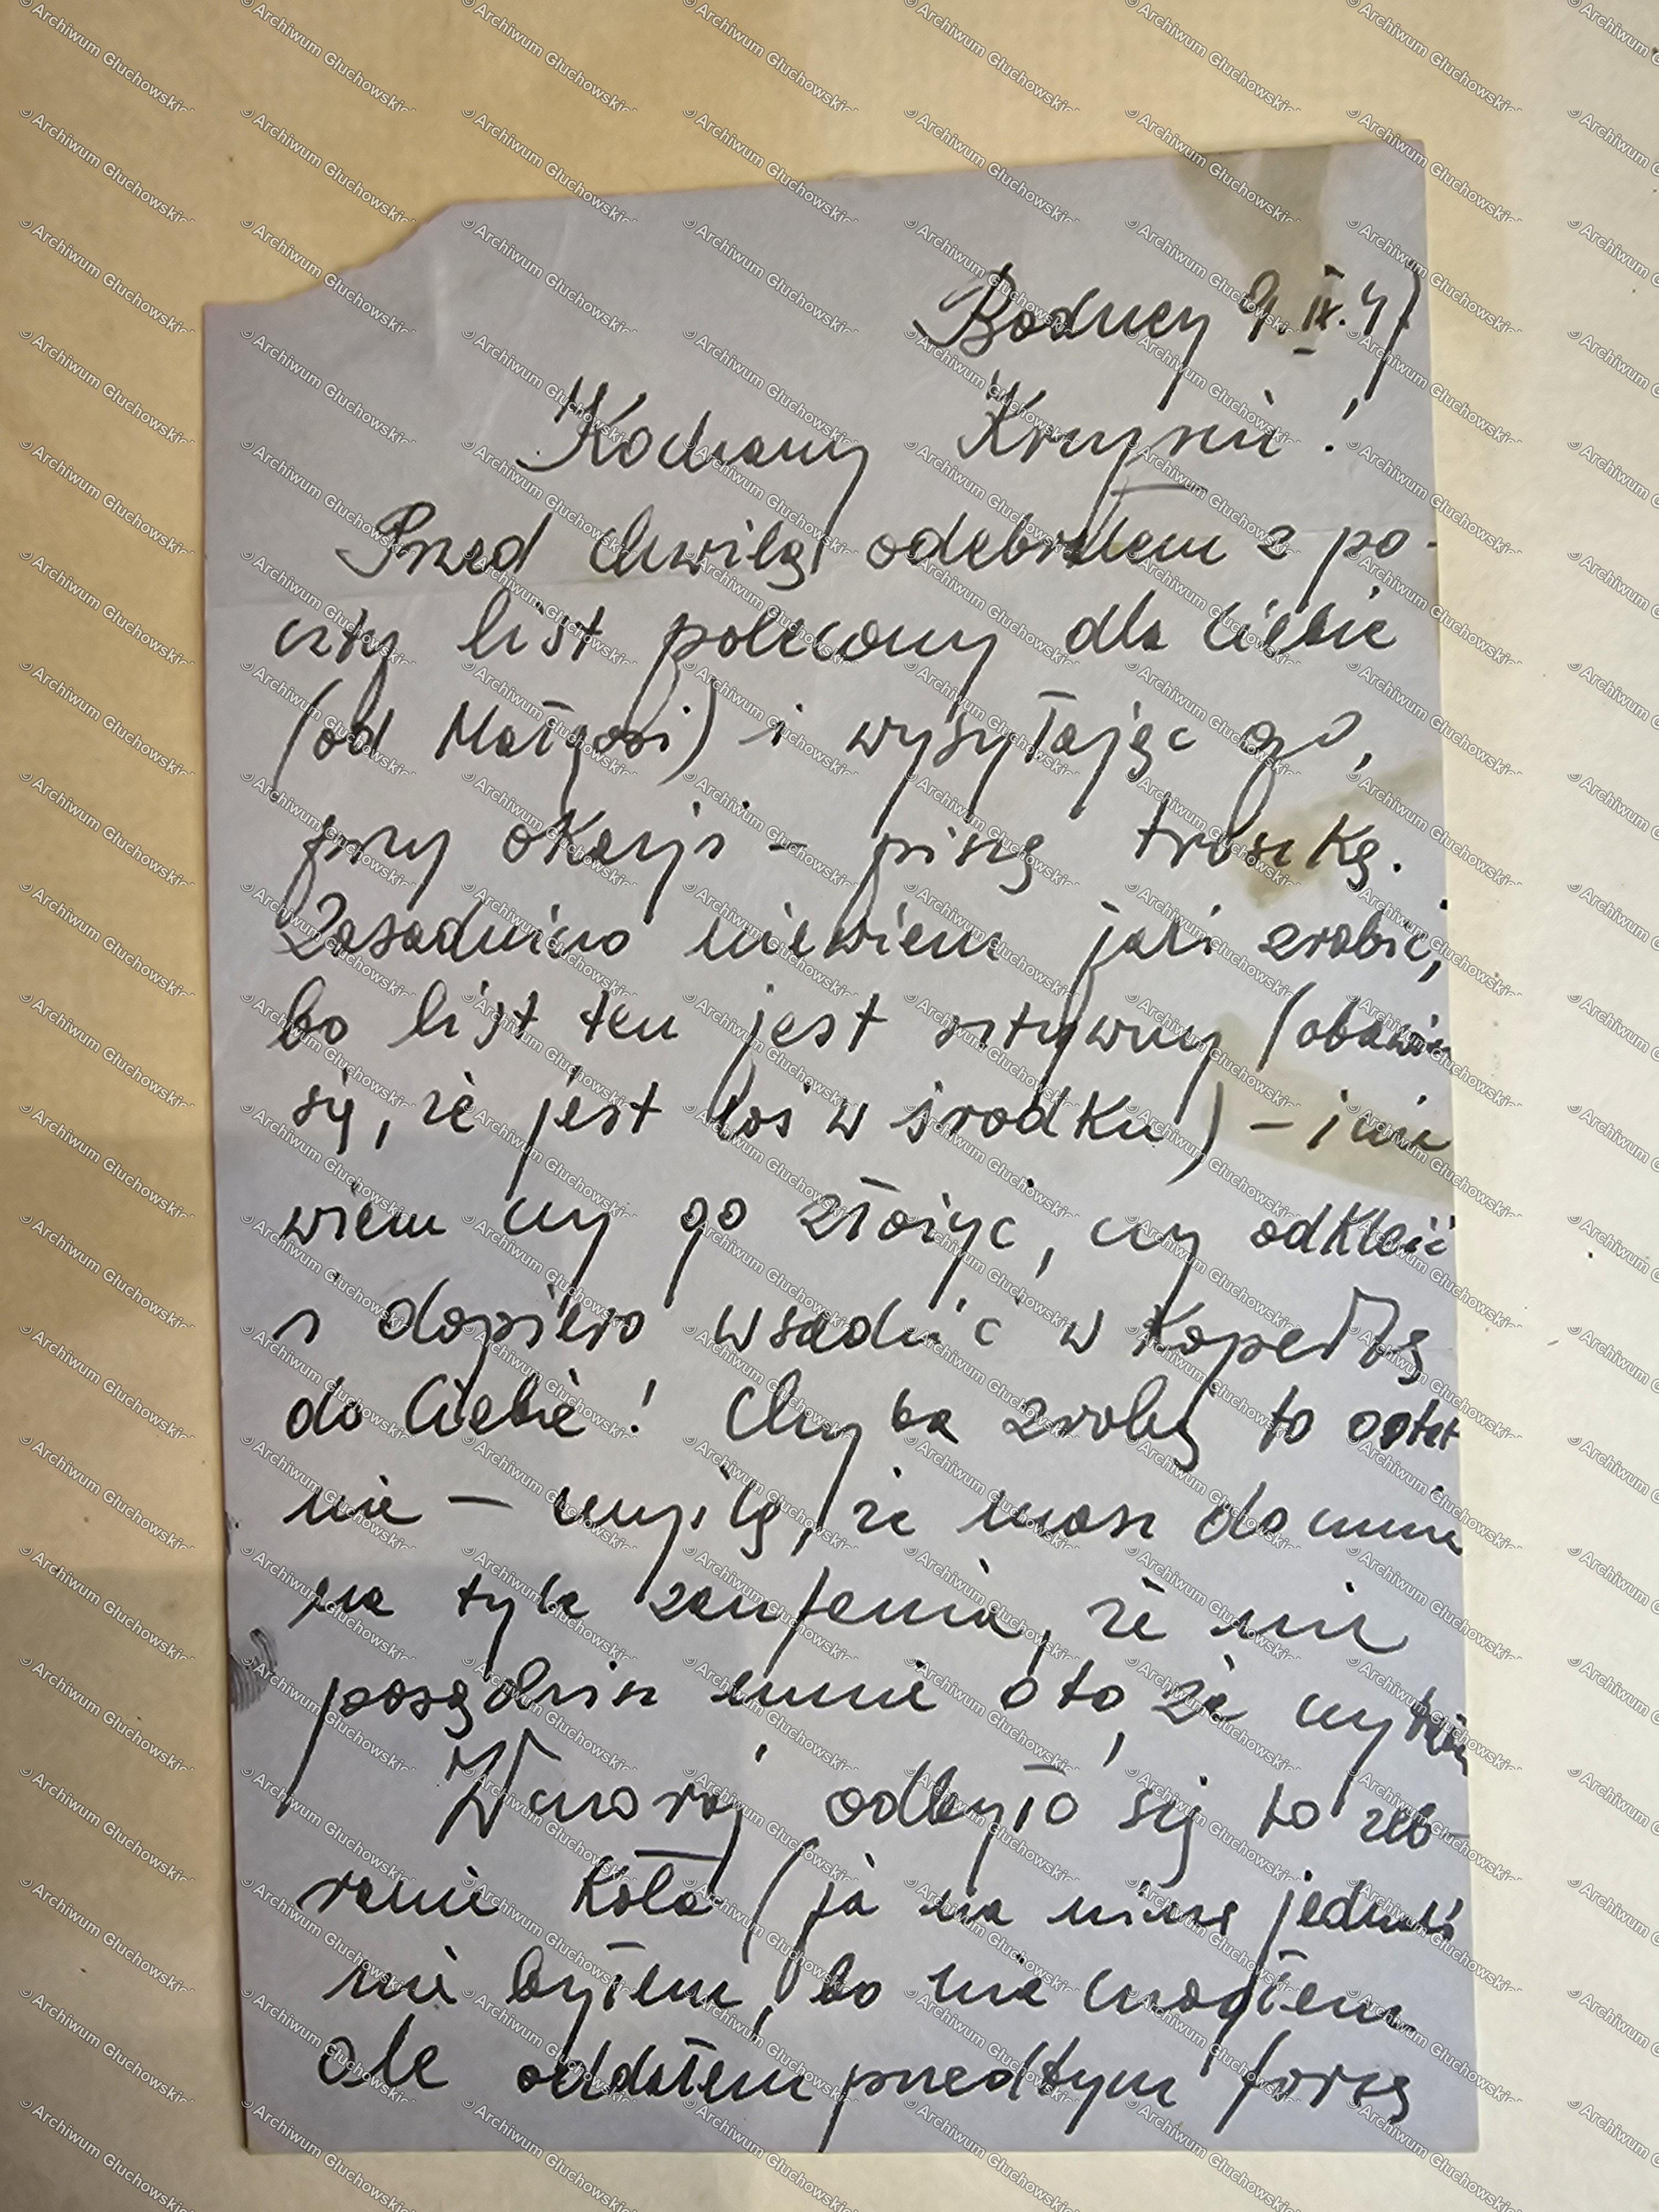 Kochany Krzysiu!
Przed chwilą odebrałem z po-
czty list polecony dla Ciebie
(od Małgosi) i wysyłając go,
przy okazji - piszę troszkę.
Zasadniczo niewiem jak zrobić,
bo list ten jest sztywny (obawiam
się, że jest coś w środku) - i nie
wiem czy go złożyć, czy odkleić
i dopiero wsadzić w kopertę
do Ciebie! Chyba zrobię to ostat
nie - myślę, że masz do mnie
na tyle zaufania, że nie
posądzisz mnie o to, że
Wczoraj odbyło się to zeb-
ranie Koła (ja na nim jednak
nie byłem, bo nie mogłem
ale oddałem przedtym forsę
© Archiwum Głuchowski